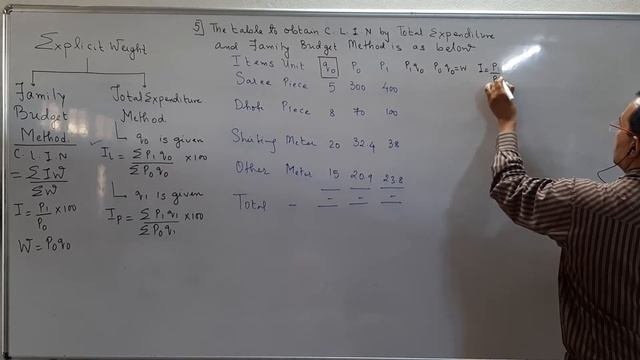 Explicit Weight
Family
Budget
Method
C. L. I. N
= ΣIW / ΣW
I = P₁/P₀ × 100
W = P₀q₀
Total Expenditure
Method
q₀ is given
I_L = ΣP₁q₀ / ΣP₀q₀ × 100
q₁ is given
I_P = ΣP₁q₁ / ΣP₀q₁ × 100
5] The table to obtain C. L. I. N by Total Expenditure
and Family Budget Method is as below
Items Unit q₀ P₀ P₁ P₁q₀ P₀q₀=W I=P₁/P₀
Saree Piece 5 300 400
Dhoti Piece 8 70 100
Shirting Meter 20 32.4 38
Other Meter 15 20.9 23.8
Total - - -